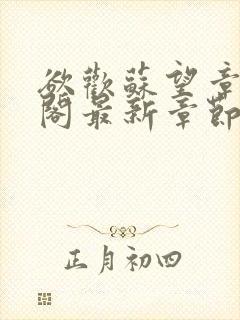 欲歡蘇望章
閣最新章節
正月初四